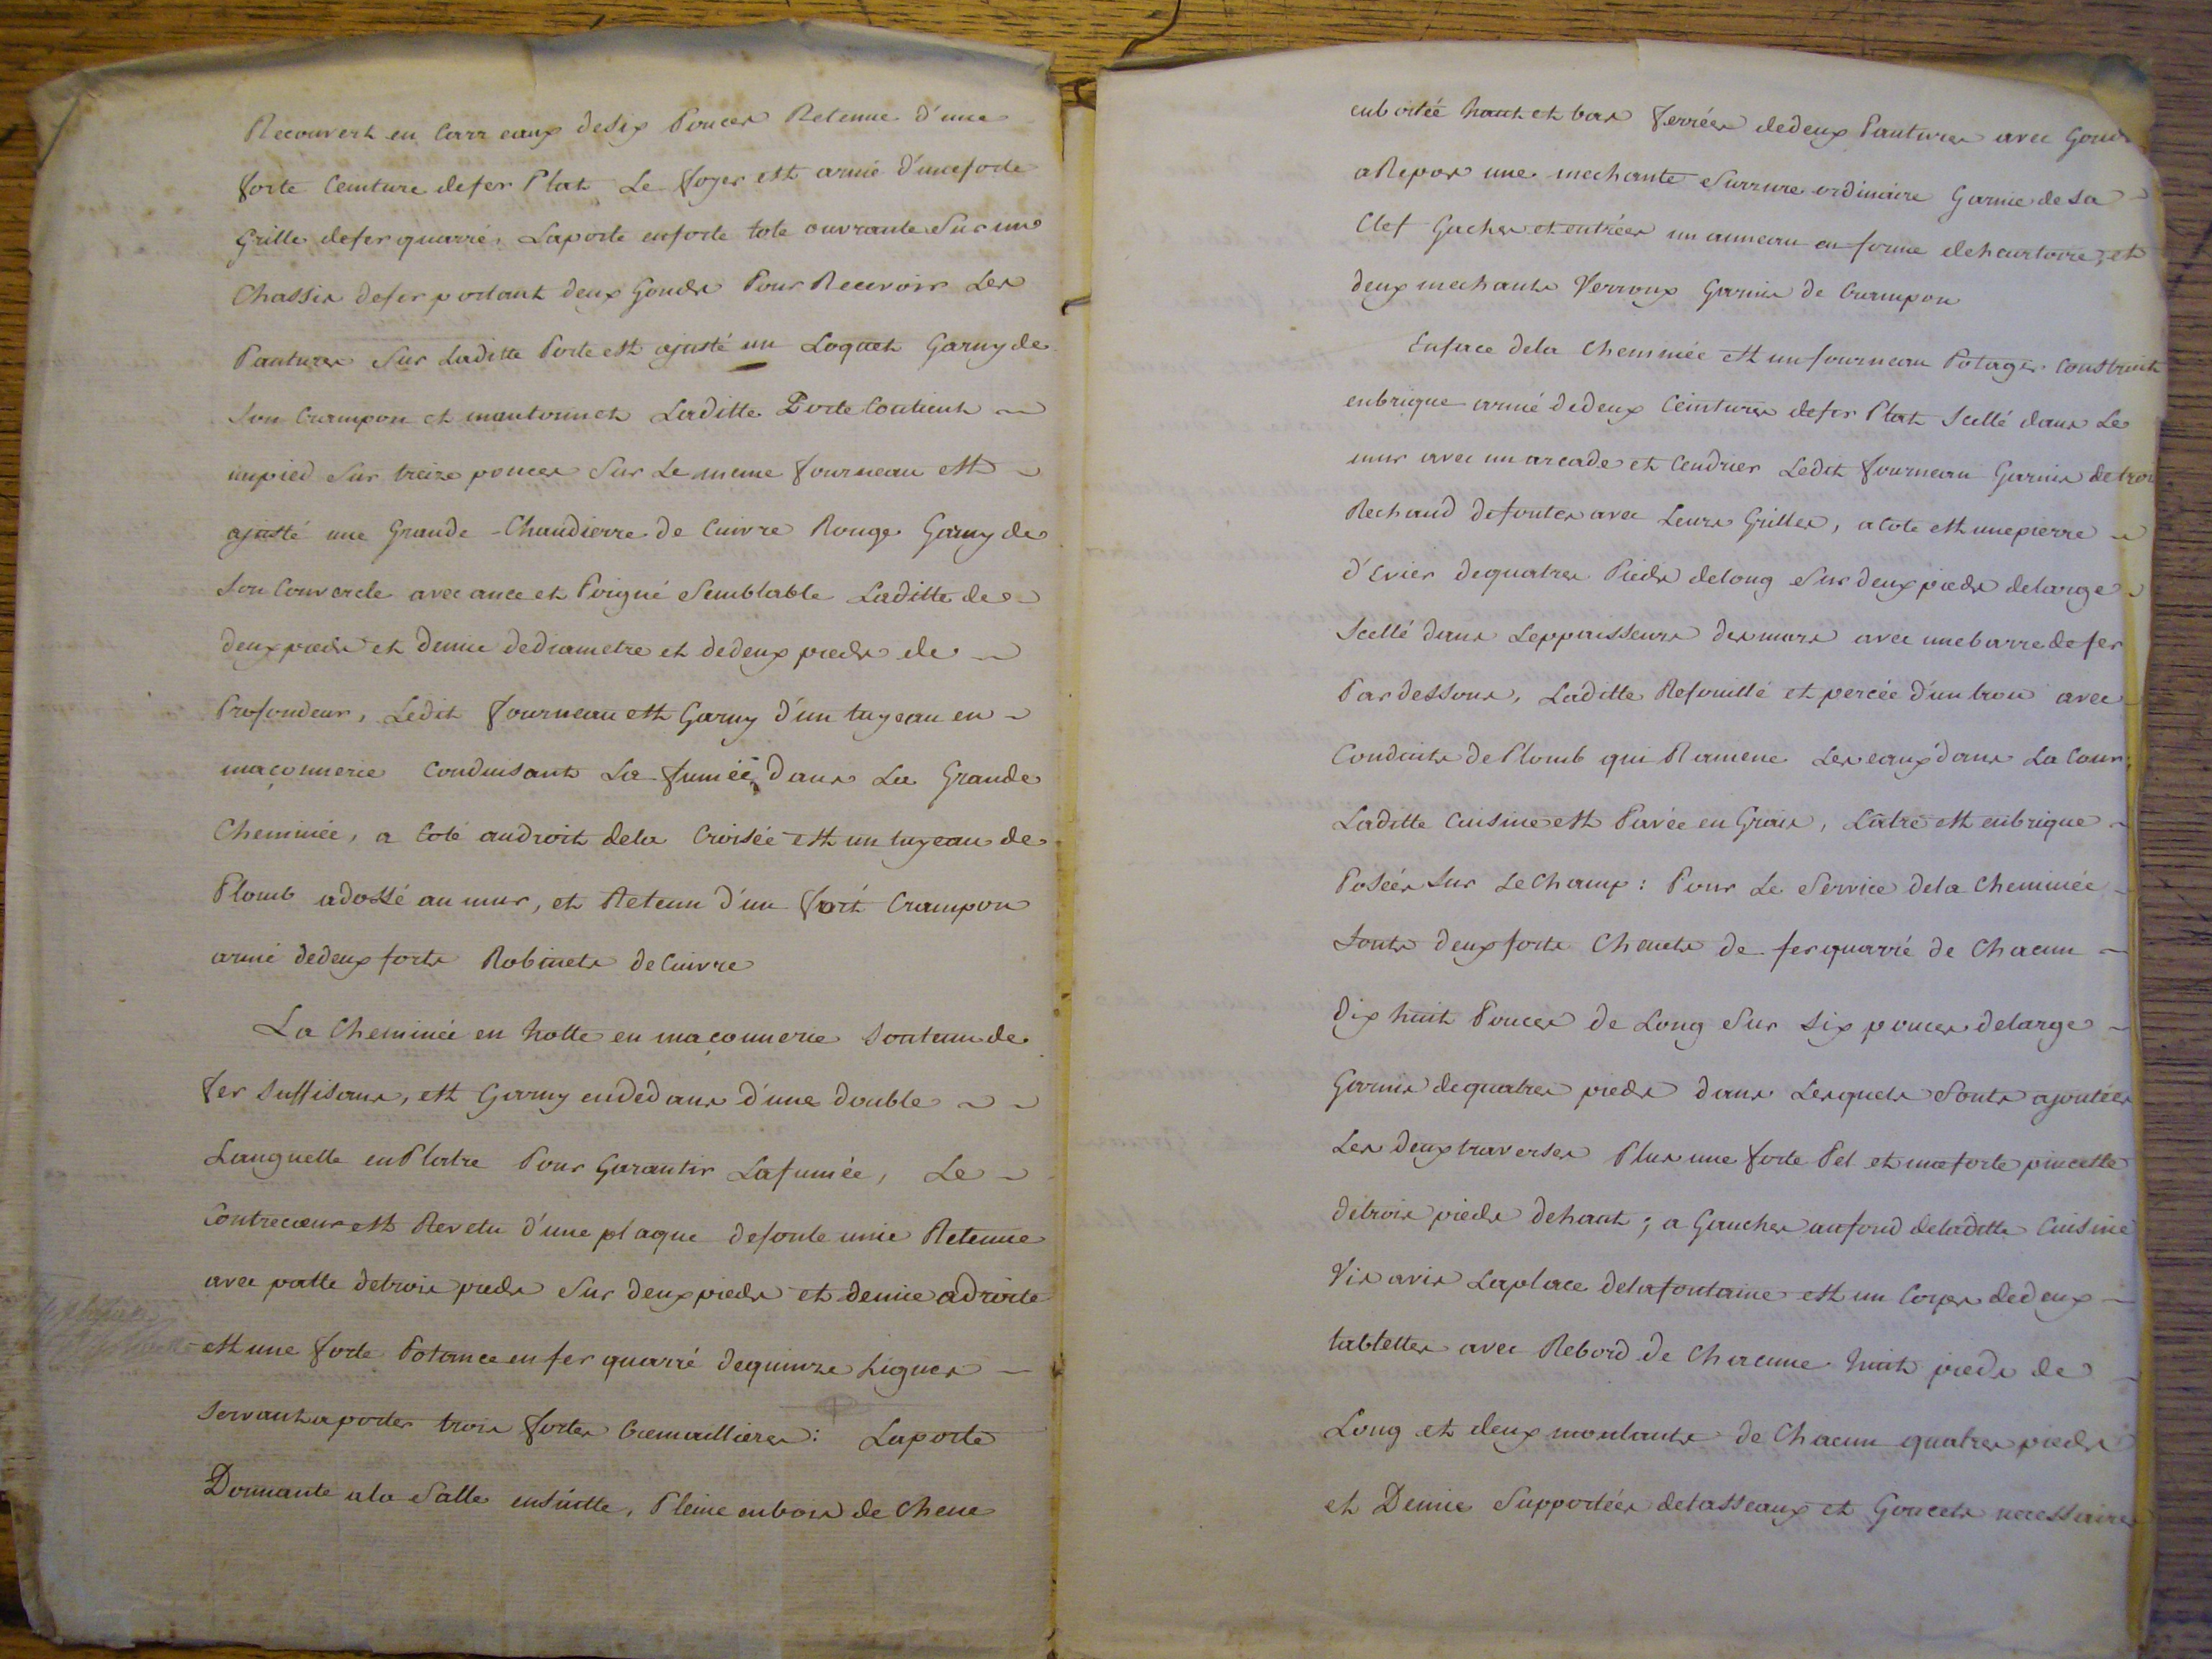 Recouvert en Carreaux de Six Pouces Retenue d'une
forte Ceinture de fer Plat Le foyer est armé d'une forte
Grille de fer quarré, La porte en forte tole ouvrante Sur un
Chassis de fer portant deux Gonds Pour Recevoir Les
Pantures Sur Laditte Porte est ajusté un Loquet Garny de
Son Crampon et mentonnet Laditte Porte Contient
un pied Sur treize pouces Sur Le meme fourneau est
ajusté une Grande Chaudierre de Cuivre Rouge Garny de
Son Couvercle avec ance et Poigné Semblable Laditte de
deux pieds et demie de diametre et de deux pieds de
Profondeur, Ledit fourneau est Garny d'un tuyeau en
maçonnerie Conduisant La fumée, dans La Grande
Cheminée, a Coté au droit de la Croisée est un tuyeau de
Plomb adossé au mur, et Retenu d'un fort Crampon
armé de deux forts Robinets de Cuivre
La Cheminée en hotte en maçonnerie Soutenu de
fer Suffisans, est Garny en dedans d'une double
Languette en Platre Pour Garantir La fumée, Le
Contrecœur est Revetu d'une plaque de fonte unie Retenue
avec patte de trois pieds Sur deux pieds et demie a droite
est une forte Potance en fer quarré de quinze Lignes
Servant a porter trois fortes Cremaillieres: La porte
Donnante a la Salle ensuitte, Pleine en bois de Chene
emboitée haut et bas ferrées de deux Pantures avec Gonds
a Repos une mechante Serrure ordinaire Garnie de Sa
Clef Gaches et entrées un anneau en forme de heurtoire, et
deux mechants Verroux Garnis de Crampon
En face de la Cheminée est un fourneau Potager Construit
en brique armé de deux Ceintures de fer Plat Scellé dans Le
mur avec un arcade et Cendrier Ledit fourneau Garnis de trois
Rechaud de fontes avec Leurs Grilles, a Cote est une pierre
d'Evier de quatres Pieds de long Sur deux pieds de large
Scellé dans L'eppaisseurs des murs avec une barre de fer
Par dessous, Laditte Refouillé et percée d'un trou avec
Conduits de Plomb qui Ramene Les eaux dans La Cour,
Laditte Cuisine est Pavée en Grais, L'atre est en brique
Posées Sur Le Champ: Pour Le Service de la Cheminée
Sonts deux forts Chenets de fer quarré de Chacun
dix huit Pouces de Long Sur Six pouces de large
Garnis de quatres pieds dans Lesquels Sonts ajoutées
Les deux traverses Plus une forte Pel et une forte pincette
de trois pieds de haut; a Gauches au fond de laditte Cuisine
Vis avis La place de la fontaine est un Corps de deux
tablettes avec Rebord de Chacune huit pieds de
Long et deux montants de Chacun quatres pieds
et Demie Supportées de tasseaux et Goucets necessaires